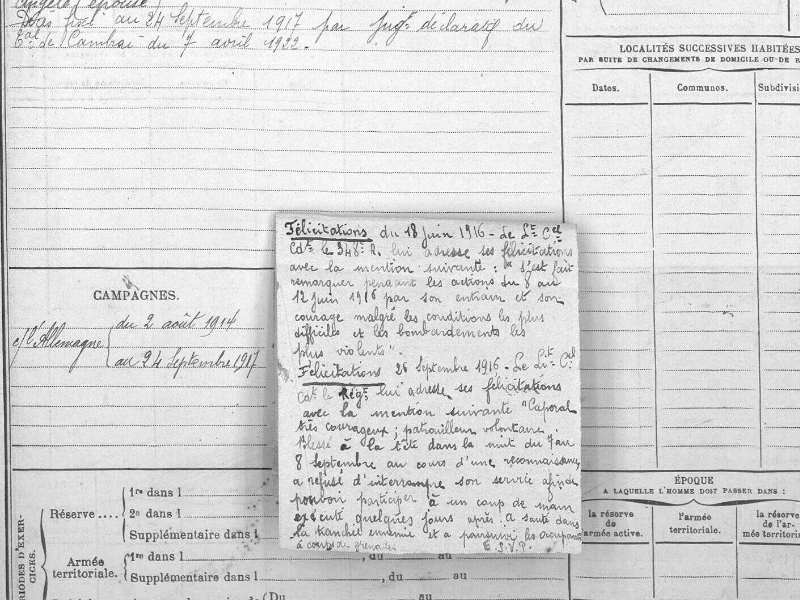 épouse)
Décès fixé au 24 Septembre 1917 par Jugt déclaratif du
Tal de Cambrai du 7 avril 1922.
LOCALITÉS SUCCESSIVES HABITÉES
PAR SUITE DE CHANGEMENTS DE DOMICILE OU DE R
Dates.
Communes.
Subdivisi
Félicitations du 18 juin 1916 - Le Lt Cel
Cdt le 348e R. lui adresse ses félicitations
avec la mention suivante : "s'est fait
remarquer pendant les actions du 8 au
12 juin 1916 par son entrain et son
courage malgré les conditions les plus
difficiles et les bombardements les
plus violents".
Félicitations 26 Septembre 1916 - Le Lt Cel
Cdt le Régt lui adresse ses félicitations
avec la mention suivante "Caporal
très courageux ; patrouilleur volontaire.
Blessé à la tête dans la nuit du 7 au
8 Septembre au cours d'une reconnaissance
a refusé d'interrompre son service afin de
pouvoir participer à un coup de main
exécuté quelques jours après. A sauté dans
la tranchée ennemie et a poursuivi les occupants
à coups de grenades
T.S.V.P.
CAMPAGNES.
c/ l'Allemagne
du 2 août 1914
au 24 Septembre 1917
PÉRIODES D'EXER-
CICES.
Réserve ....
1re dans l
2e dans l
Supplémentaire dans l
Armée
territoriale.
1re dans l
, du
au
Supplémentaire dans l
, du
au
(Du
au
ÉPOQUE
A LAQUELLE L'HOMME DOIT PASSER DANS :
la réserve
de
armée active.
l'armée
territoriale.
la réserve
de l'ar-
mée territori